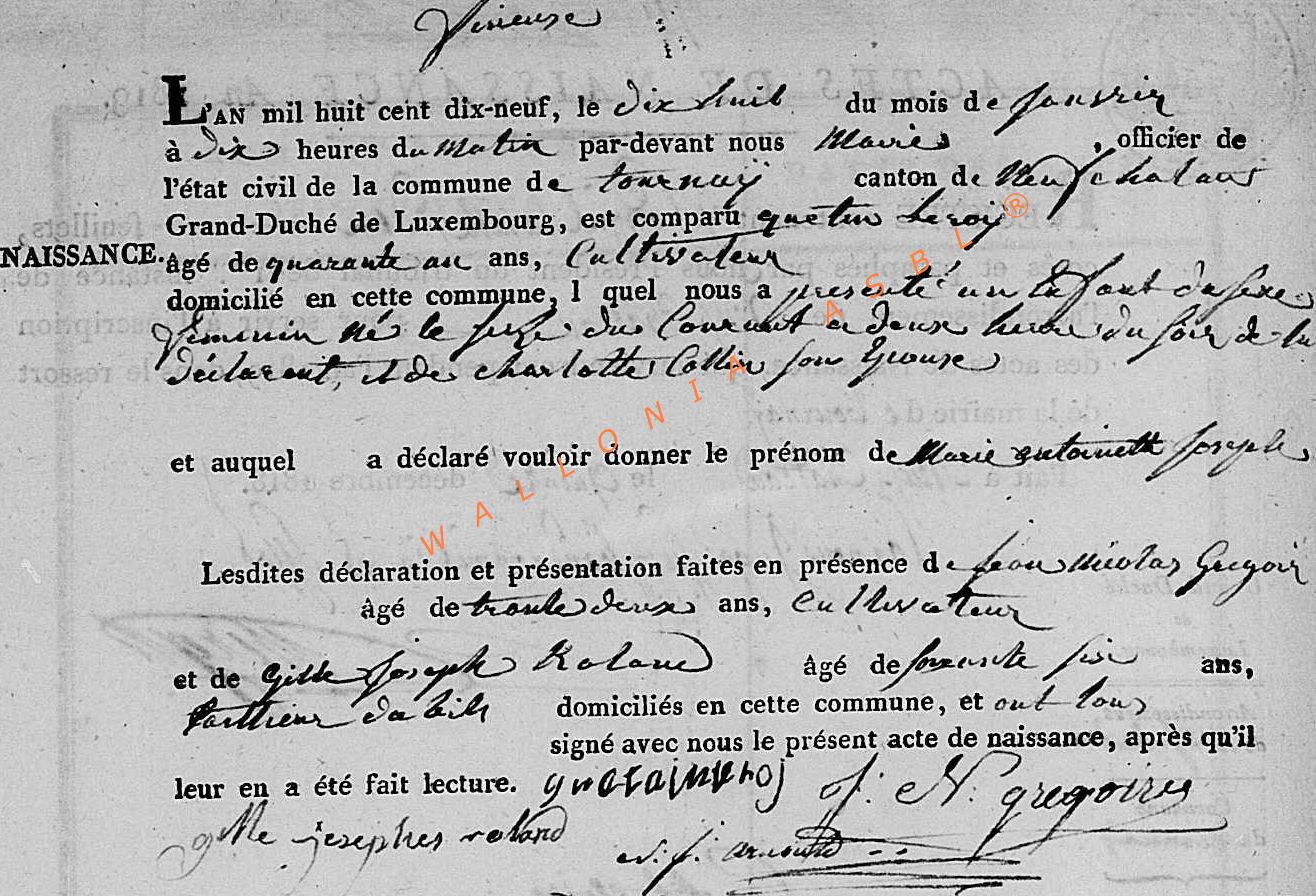 L'AN mil huit cent dix-neuf, le dix huit du mois de janvier
à dix heures du matin par-devant nous Maire, officier de
l'état civil de la commune de tournay canton de Neufchateau
Grand-Duché de Luxembourg, est comparu quetin Leroy
NAISSANCE. âgé de quarante un ans, Cultivateur
domicilié en cette commune, l quel nous a presenté un Enfant du sexe
feminin né le seize du Courant a deux heures du soir de lui
déclarent, et de charlotte Collin son Epouse
et auquel a déclaré vouloir donner le prénom de Marie antoinette joseph
Lesdites déclaration et présentation faites en présence de jean Nicolas Gregoir
âgé de trente deux ans, Cultivateur
et de Gille joseph Roland âgé de soixante six ans,
tallieur dabits domiciliés en cette commune, et ont tous
signé avec nous le présent acte de naissance, après qu'il
leur en a été fait lecture. J: N: gregoires
gille josephes roland
N. J. arnould
WALLONIA ASBL®